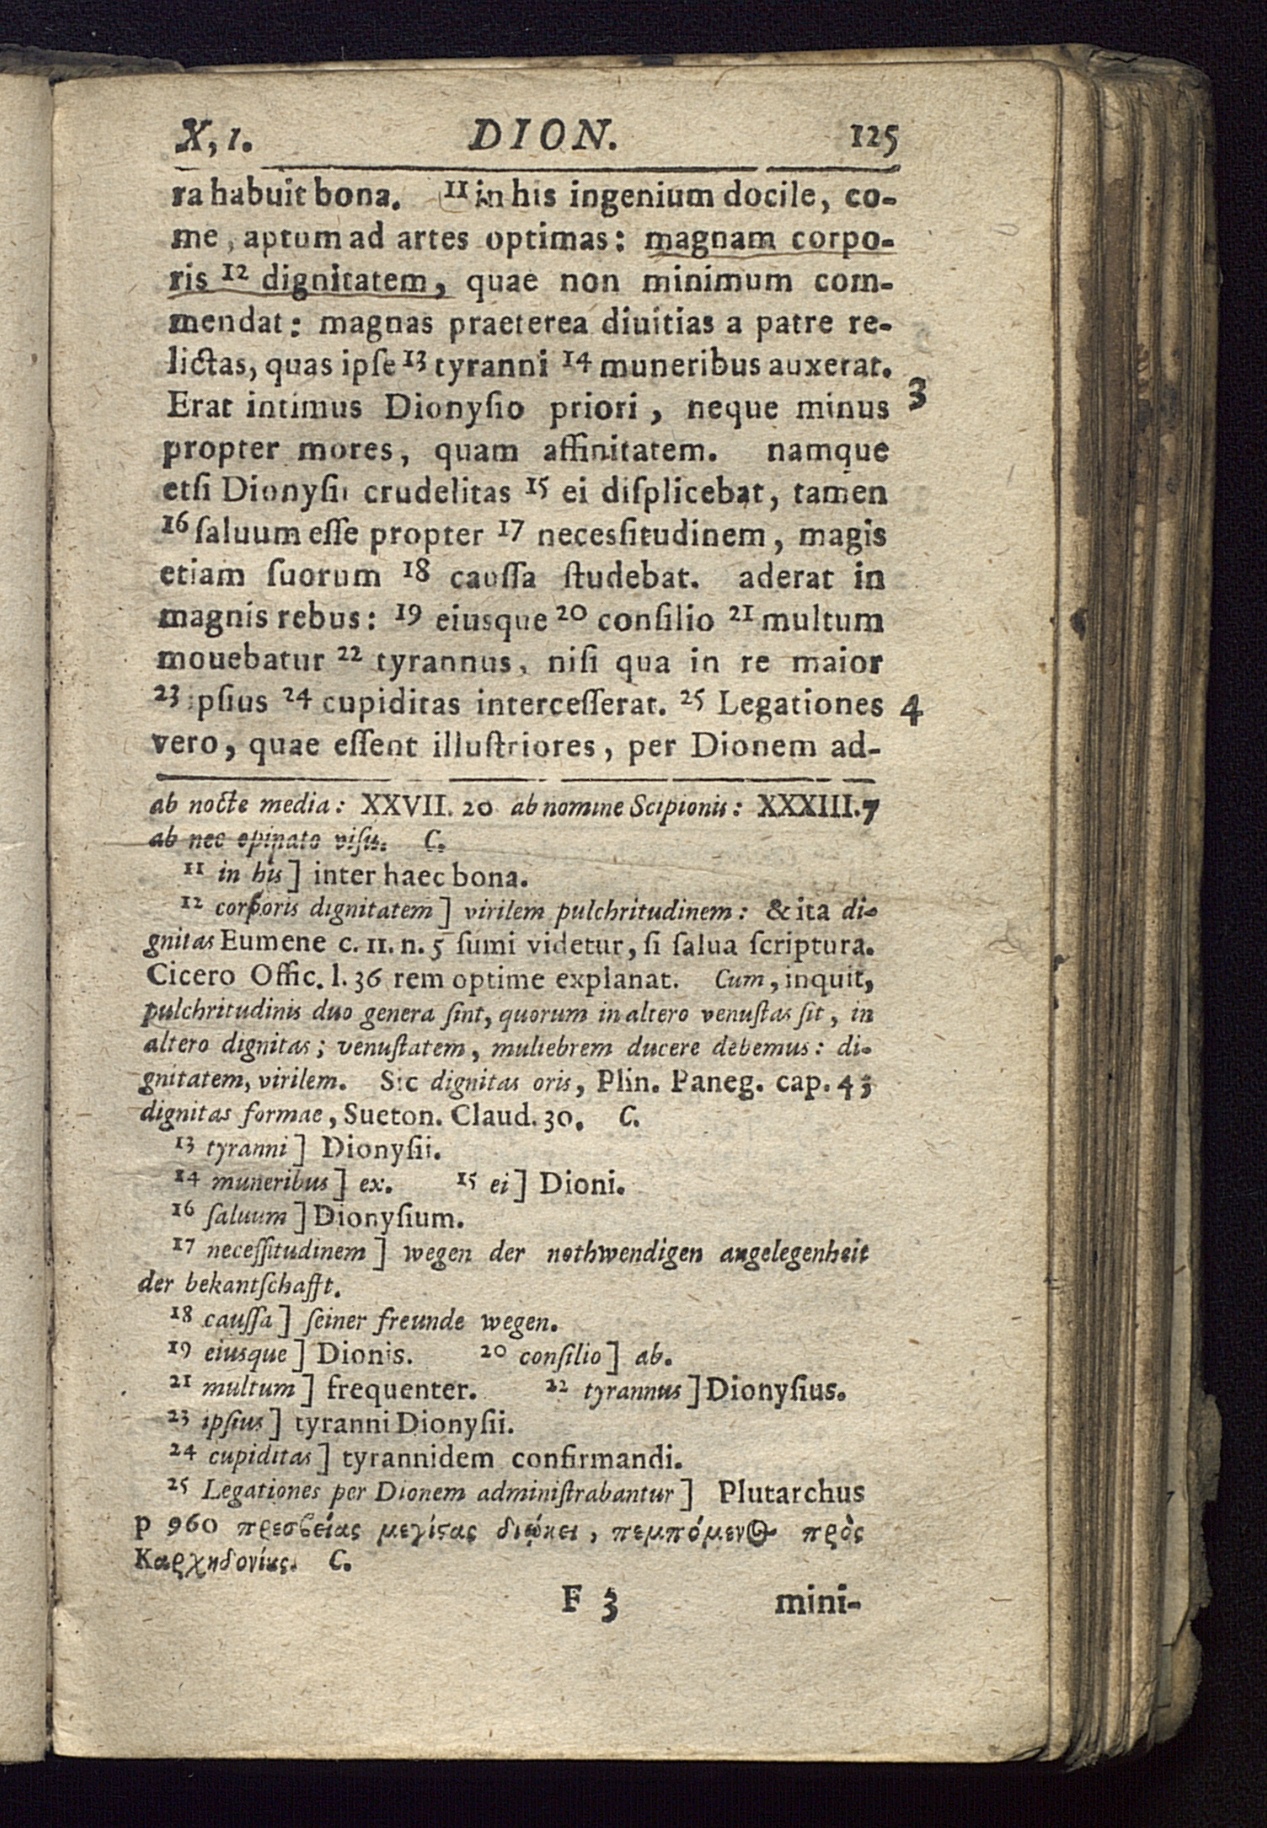 X, 1. DION. 125
ra habuit bona. ¹¹ in his ingenium docile, co-
me, aptum ad artes optimas: magnam corpo-
ris ¹² dignitatem, quae non minimum com-
mendat: magnas praeterea diuitias a patre re-
lictas, quas ipſe ¹³ tyranni ¹⁴ muneribus auxerat.
Erat intimus Dionyſio priori, neque minus 3
propter mores, quam affinitatem. namque
etſi Dionyſii crudelitas ¹⁵ ei diſplicebat, tamen
¹⁶ ſaluum eſſe propter ¹⁷ necesſitudinem, magis
etiam ſuorum ¹⁸ cauſſa ſtudebat. aderat in
magnis rebus: ¹⁹ eiusque ²⁰ conſilio ²¹ multum
mouebatur ²² tyrannus, niſi qua in re maior
²³ ipſius ²⁴ cupiditas interceſſerat. ²⁵ Legationes 4
vero, quae eſſent illuſtriores, per Dionem ad-
ab nocte media: XXVII. 20 ab nomine Scipionis: XXXIII. 7
ab nec opinato viſu. C.
¹¹ in his] inter haec bona.
¹² corporis dignitatem] virilem pulchritudinem: & ita di-
gnitas Eumene c. 11. n. 5 ſumi videtur, ſi ſalua ſcriptura.
Cicero Offic. l. 36 rem optime explanat. Cum, inquit,
pulchritudinis duo genera ſint, quorum in altero venuſtas ſit, in
altero dignitas; venuſtatem, muliebrem ducere debemus: di-
gnitatem, virilem. Sic dignitas oris, Plin. Paneg. cap. 43
dignitas formae, Sueton. Claud. 30. C.
¹³ tyranni] Dionyſii.
¹⁴ muneribus] ex. ¹⁵ ei] Dioni.
¹⁶ ſaluum] Dionyſium.
¹⁷ neceſſitudinem] wegen der nothwendigen angelegenheit
der bekantſchafft.
¹⁸ cauſſa] ſeiner freunde wegen.
¹⁹ eiusque] Dionis. ²⁰ conſilio] ab.
²¹ multum] frequenter. ²² tyrannus] Dionyſius.
²³ ipſius] tyranni Dionyſii.
²⁴ cupiditas] tyrannidem confirmandi.
²⁵ Legationes per Dionem adminiſtrabantur] Plutarchus
p 960 πρεσβείας μεγίςας διῴκει, πεμπόμενος πρὸς
Καρχηδονίȣς. C.
F 3 mini-